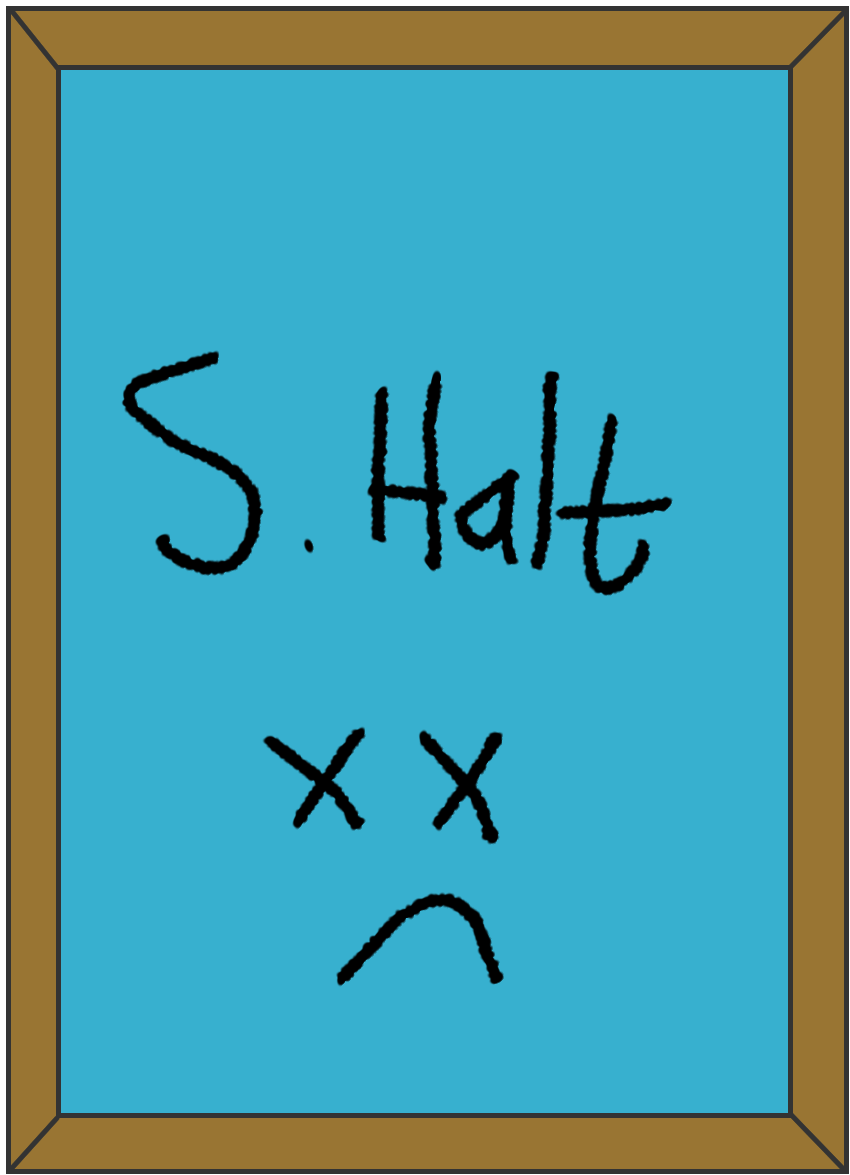 S. Halt